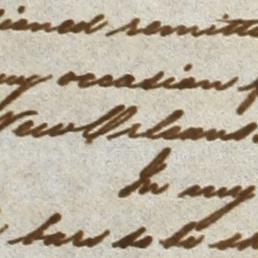 remitt
my occasion
New Orleans
In my
bars to be